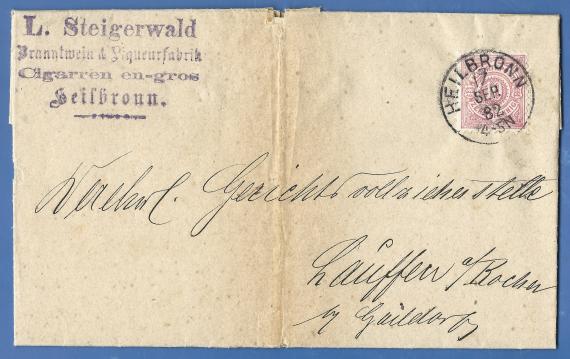 L. Steigerwald
Branntwein & Liqueurfabrik
Cigarren en-gros
Heilbronn.
HEILBRONN
7
SEP.
82
4-5N
Verehrl. Gerichtsvollzieherstelle
Lauffen a/Kocher
by Gaildorf